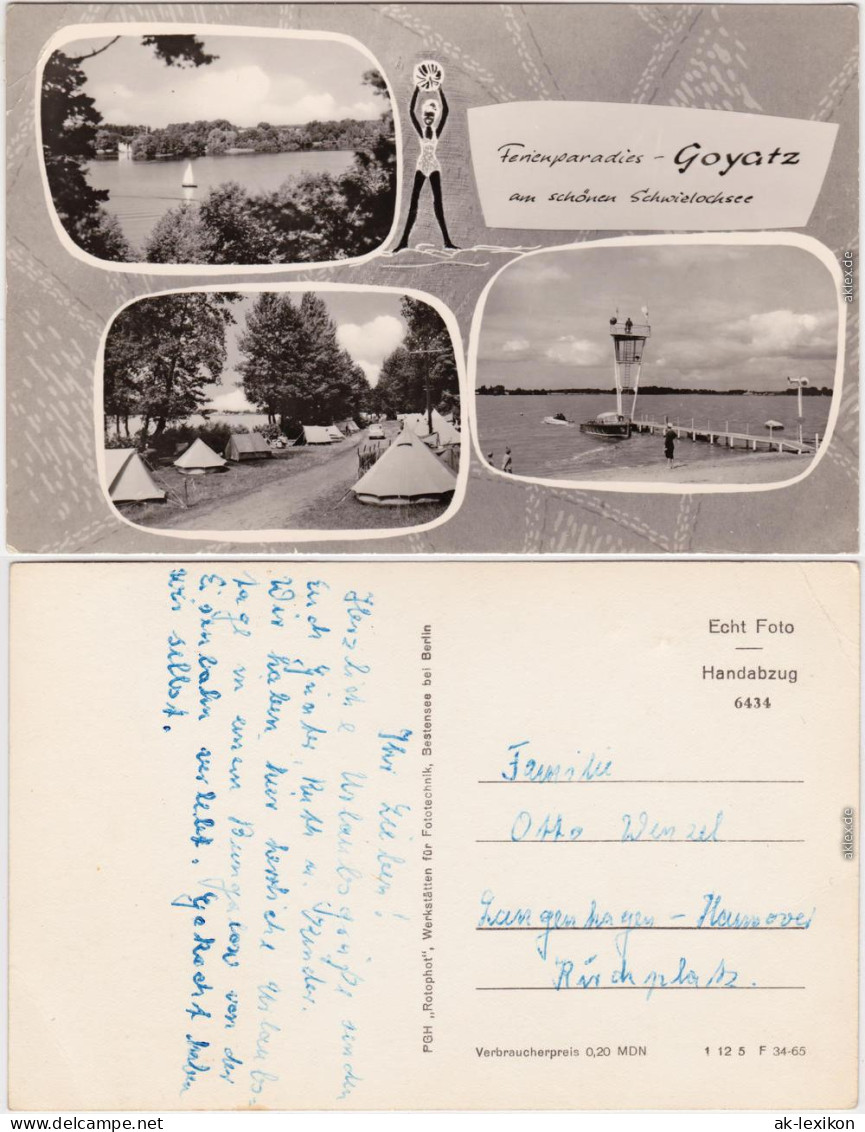 Ferienparadies - Goyatz
am schönen Schwielochsee
aklex.de
Ihr Lieben!
Herzliche Urlaubsgrüße senden
Euch Günter, Ruth u. Kinder.
Wir haben hier herrliche Urlaubs-
tage in einem Bungalow von der
Eisenbahn verlebt. Gekocht haben
wir selbst.
PGH „Rotophot", Werkstätten für Fototechnik, Bestensee bei Berlin
Echt Foto
Handabzug
6434
Familie
Otto Wenzel
Langenhagen - Hannover
Kirchplatz.
Verbraucherpreis 0,20 MDN 1 12 5 F 34-65
aklex.de
ak-lexikon